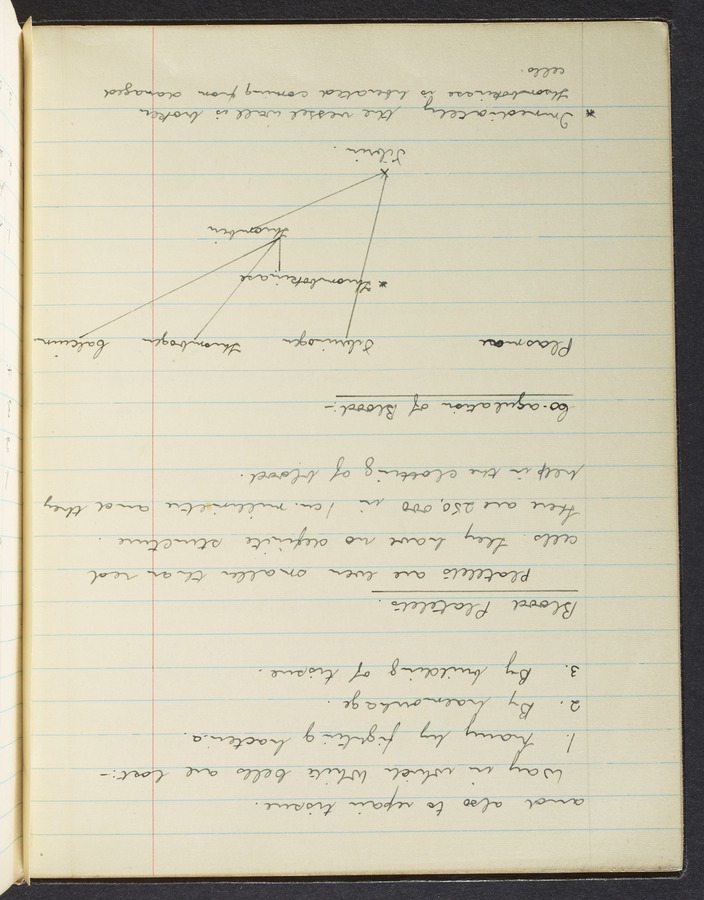 and also to repair tissue.
Way in which White Cells are lost:-
1. Many by fighting bacteria.
2. By haemorrhage.
3. By building of tissue.
Blood Platelets.
Platelets are even smaller than red
cells. They have no definite structure.
There are 250,000 in 1 cu. millimetre and they
help in the clotting of blood.
Co-agulation of Blood:-
Plasma Fibrinogen Thrombogen Calcium
* Thrombokinase
Thrombin
Fibrin.
* Immediately the vessel wall is broken
thrombokinase is liberated coming from damaged
cells.